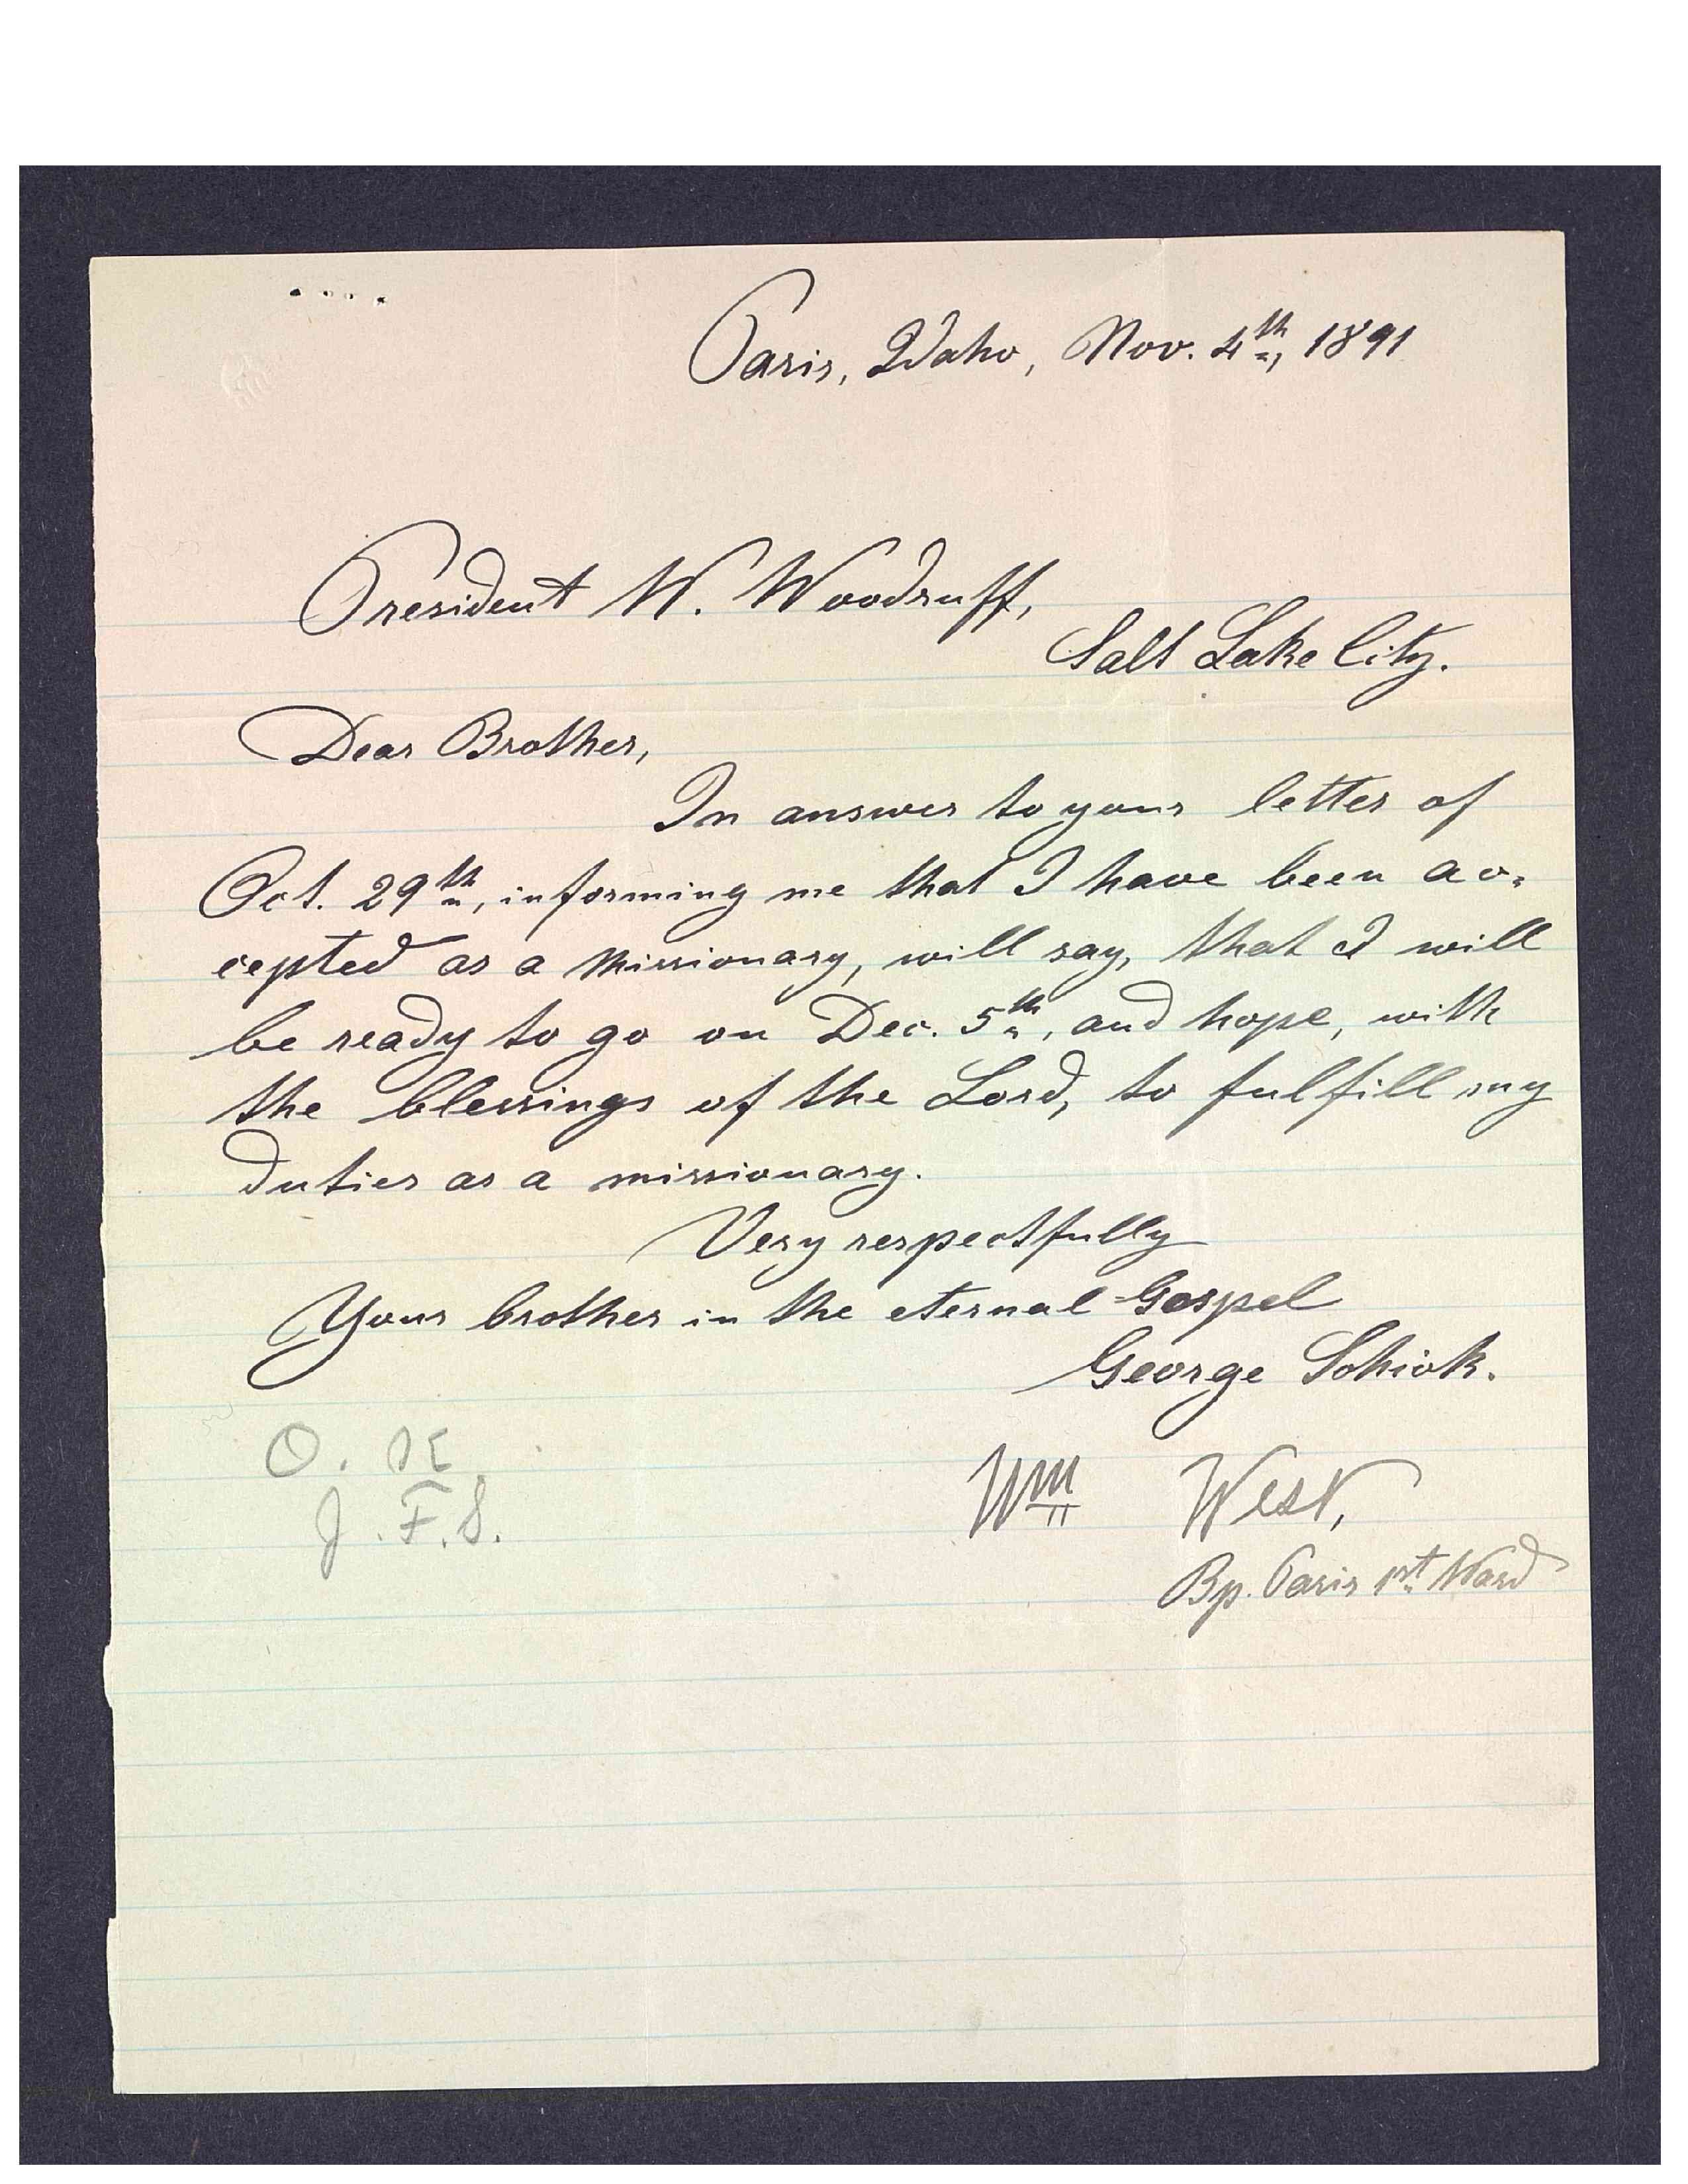 Paris, Idaho, Nov. 4th, 1891
President W. Woodruff,
Salt Lake City.
Dear Brother,
In answer to your letter of
Oct. 29th, informing me that I have been ac-
cepted as a missionary, will say, that I will
be ready to go on Dec. 5th, and hope, with
the blessings of the Lord, to fulfill my
duties as a missionary.
Very respectfully
Your brother in the eternal Gospel
George Schick.
O. K
J. F. S.
Wm West,
Bp. Paris 1st Ward